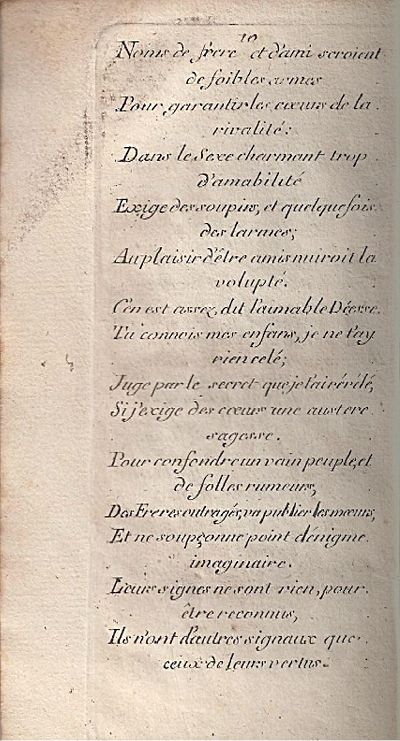 10
Noms de frere et d'ami seroient
de foibles armes
Pour garantir les cœurs de la
rivalité:
Dans le Sexe charmant trop
d'amabilité
Exige des soupirs, et quelquefois
des larmes;
Au plaisir d'être amis nuiroit la
volupté.
C'en est assez, dit l'aimable Déesse.
Tu connois mes enfans, je ne t'ay
rien celé;
Juge par le secret que je t'ai révélé,
Si j'exige des cœurs une austere
sagesse.
Pour confondre un vain peuple, et
de folles rumeurs,
Des Freres outragés, va publier les mœurs,
Et ne soupçonne point d'énigme
imaginaire.
Leurs signes ne sont rien, pour
être reconnus,
Ils n'ont d'autres signaux que
ceux de leurs vertus.